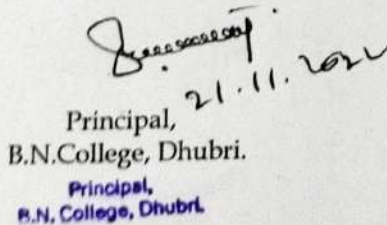 21.11.2022
Principal,
B.N.College, Dhubri.
Principal,
B.N. College, Dhubri.